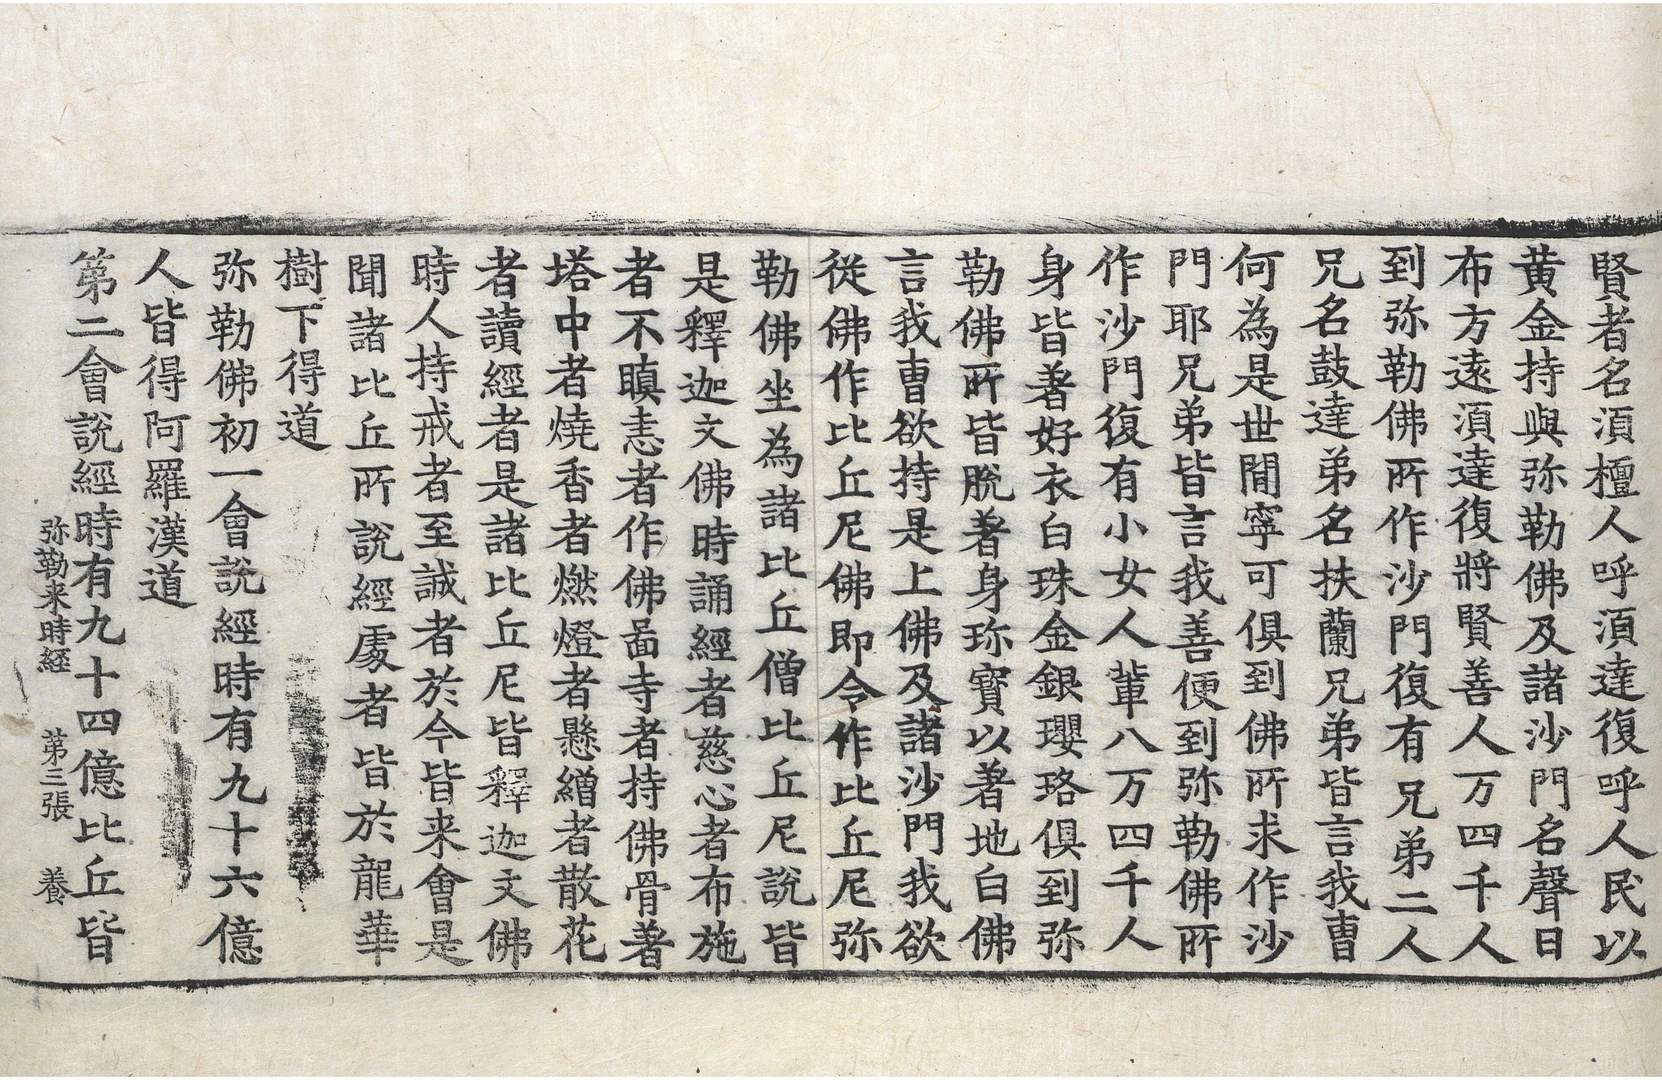 賢者名須檀人呼須達復呼人民以
黄金持與弥勒佛及諸沙門名聲日
布方遠須達復將賢善人万四千人
到弥勒佛所作沙門復有兄弟二人
兄名鼓達弟名扶蘭兄弟皆言我曹
何為是世間寧可俱到佛所求作沙
門耶兄弟皆言我善便到弥勒佛所
作沙門復有小女人輩八万四千人
身皆著好衣白珠金銀瓔珞俱到弥
勒佛所皆脫著身珎寶以著地白佛
言我曹欲持是上佛及諸沙門我欲
從佛作比丘尼佛即令作比丘尼弥
勒佛坐為諸比丘僧比丘尼說皆
是釋迦文佛時誦經者慈心者布施
者不瞋恚者作佛啚寺者持佛骨著
塔中者燒香者燃燈者懸繒者散花
者讀經者是諸比丘尼皆釋迦文佛
時人持戒者至誠者於今皆来會是
聞諸比丘所說經處者皆於龍華
樹下得道
弥勒佛初一會說經時有九十六億
人皆得阿羅漢道
第二會說經時有九十四億比丘皆
弥勒来時経 第三張 養